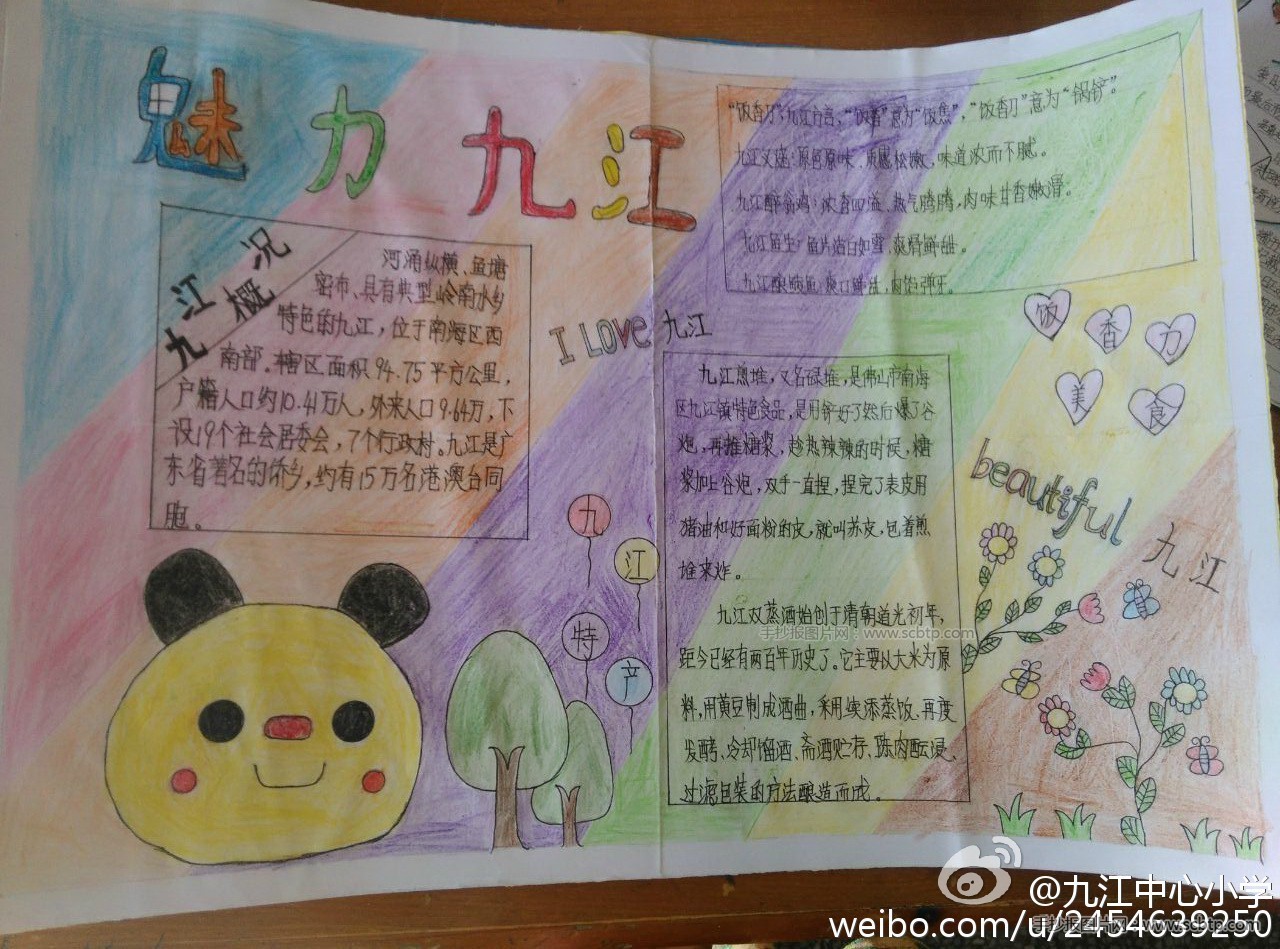 魅力九江
九江概况
河涌纵横、鱼塘
密布、具有典型岭南水乡
特色的九江，位于南海区西
南部。辖区面积94.75平方公里，
户籍人口约10.41万人，外来人口9.64万，下
设19个社会居委会，7个行政村。九江是广
东省著名的侨乡，约有15万名港澳台同
胞。
"饭香刀"：九江方言，"饭香"意为"饭焦"，"饭香刀"意为"锅铲"。
九江叉座：原色原味、质感松嫩，味道浓而不腻。
九江醉翁鸡：浓香四溢、热气腾腾，肉味甘香嫩滑。
九江鱼生：鱼片洁白如雪、爽滑鲜甜。
九江酿鲮鱼：爽口鲜甜、肉馅弹牙。
I LOVE 九江
饭香力
美食
九江煎堆，又名碌堆，是佛山市南海
区九江镇特色食品，是用舂好了然后爆了谷
炮，再推糖浆，趁热辣辣的时候，糖
浆加上谷炮，双手一直捏，捏完了表皮用
猪油和好面粉的皮，就叫苏皮，包着煎
堆来炸。
beautiful 九江
九江特产
九江双蒸酒始创于清朝道光初年，
手抄报图片网：www.scbtp.com
距今已经有两百年历史了。它主要以大米为原
料，用黄豆制成酒曲，采用续添蒸饭、再度
发酵、冷却馏酒、斋酒贮存、陈肉酝浸、
过滤包装的方法酿造而成。
@九江中心小学
weibo.com/u/2454639250
手抄报图片网：www.scbtp.com